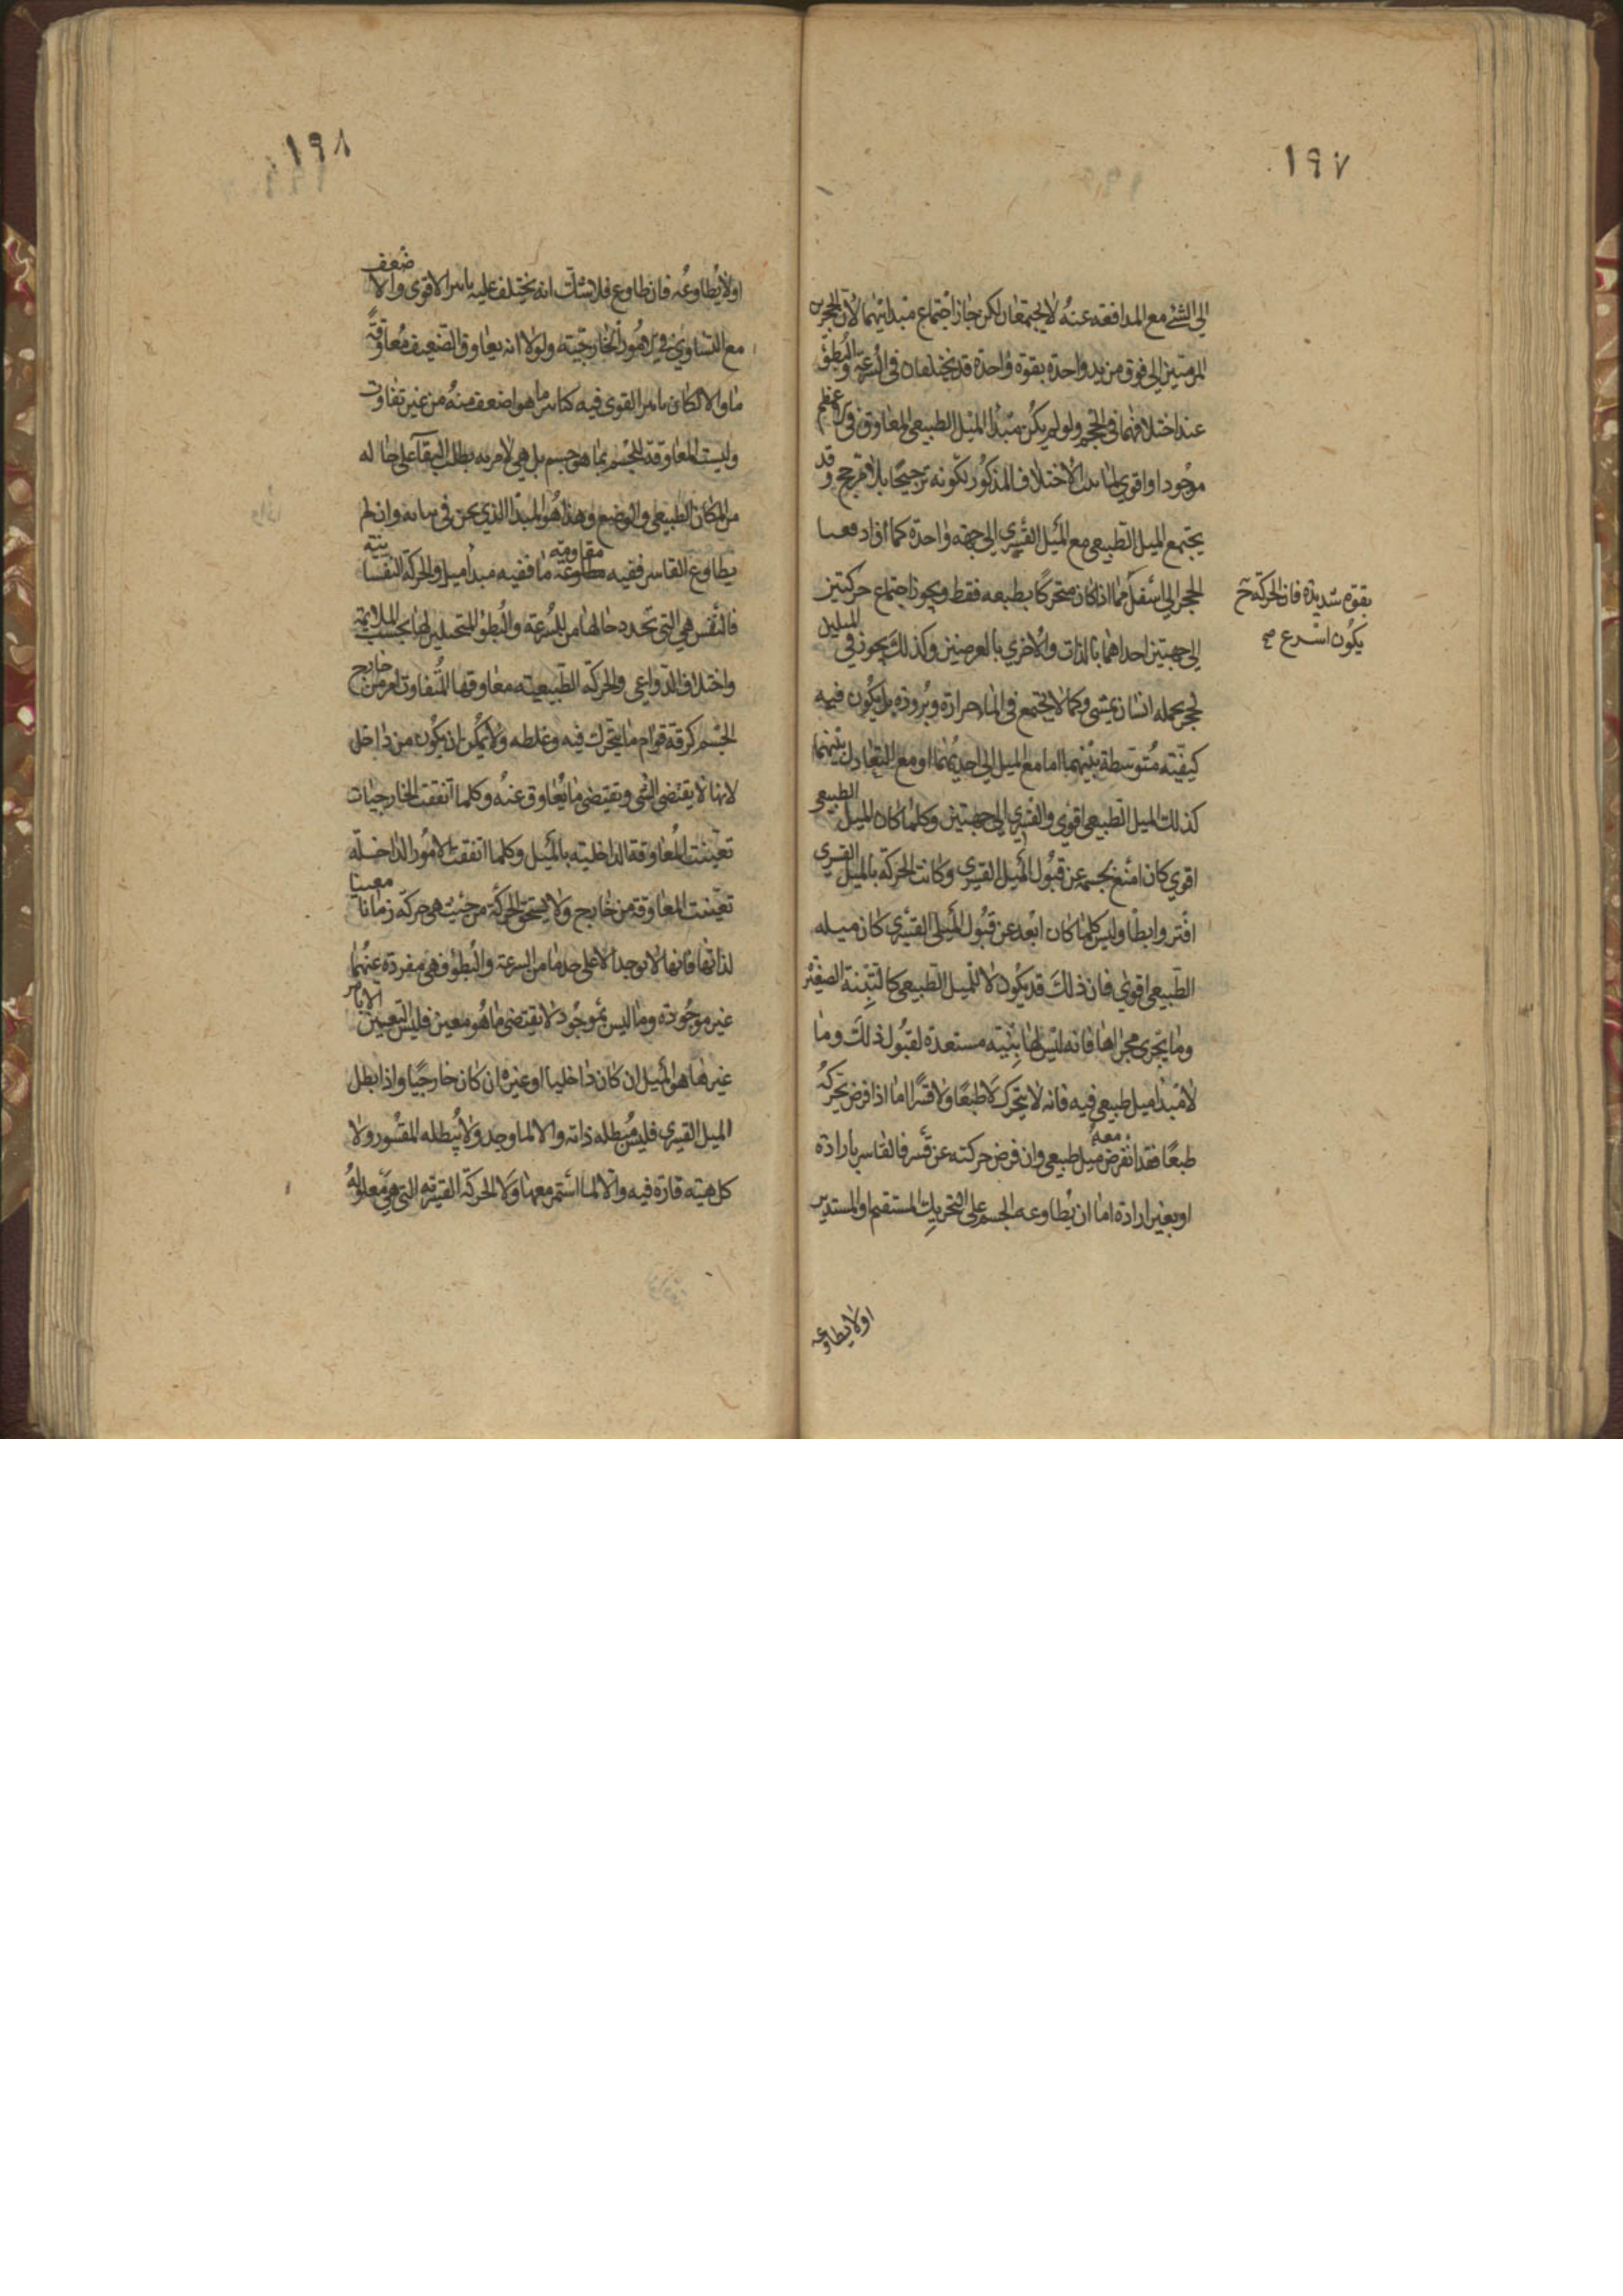 ١٩٧
الى الشئ مع المدافعه عنه لا يجتمعان لكن جاز اجتماع مبدائيهما لان الحجرين
المرميين الى فوق من يد واحدة بقوة واحدة قد يختلفان فى السرعة والبطؤ
عند اختلافهما فى الحجم ولو لم يكن مبدأ الميل الطبيعى المعاوق فى عظم
موجودا او اقوى لما الاختلاف المذكور لكونه ترجيحا بلا مرجح وقد
يجتمع الميل الطبيعى مع الميل القسرى الى جهة واحدة كما اذا دفعنا
الحجر الى اسفل مما اذا كان متحركا بطبعه فقط ويجوز اجتماع حركتين
بقوة شديدة فان الحركة ح
يكون اسرع صح
الى جهتين احداهما بالذات والاخرى بالعرض وكذلك يجوز فى الميلين
لحجر يحمله انسان يمشى وكما لا يجتمع فى الماء حرارة وبرودة بل يكون فيه
كيفية متوسطة بينهما اما مع الميل الى احديهما او مع التعادل بينهما
كذلك الميل الطبيعى اقوى والقسرى الى جهتين وكلما كان الميل الطبيعى
اقوى كان امنع لجسمه عن قبول الميل القسرى وكانت الحركة بالميل القسرى
افتر وابطأ وليس كلما كان ابعد عن قبول الميل القسرى كان ميله
الطبيعى اقوى فان ذلك قد يكون لا للميل الطبيعى كالتبنة الصغيرة
وما يجرى مجراها فانه ليس لها بنية مستعدة لقبول ذلك وما
لا مبدأ ميل طبيعى فيه فانه لا يتحرك لا طبعا ولا قسرا اما اذا فرض تحركه
طبعا فقد انفرض معه ميل طبيعى وان فرض حركته عن قسر فالقاسر بارادة
او بغير ارادة اما ان يطاوعه الجسم على التحريك المستقيم او المستدير
اولا يطاوعه
١٩٨
اولا يطاوعه فان طاوع فلا شك انه يختلف عليه تاثير الاقوى والاضعف
مع التساوى فى الامور الخارجية ولولا انه يعاوق الضعيف معاوقة
ما والا لكان تاثير القوى فيه كتاثير ما هو اضعف منه من غير تفاوت
وليست المعاوقة للجسم بما هو جسم بل هى لامر به يطلب البقآ على حاله
من المكان الطبيعى والوضع وهذا هو المبدأ الذى نحن فى بيانه وان لم
يطاوع القاسر ففيه مقاومة ما ففيه مبدأ ميل والحركة النفسانية
فالنفس هى التى تحدد حالها من السرعة والبطؤ المتخيلين لها بحسب الملايمة
واختلاف الدواعى والحركة الطبيعية معاوقها المتفاوت لعرض خارج
الجسم كرقة قوام ما يتحرك فيه وغلظه ولا يمكن ان يكون من داخل
لانها لا يقتضى الشى وتقتضى ما يعاوق عنه وكلما اتفقت الخارجيات
تعينت المعاوقة الداخلية بالميل وكلما اتفقت الامور الداخلة
تعينت المعاوقة من خارج ولا يستحق الحركة من حيث هى حركة زمانا معينا
لذاتها فانها لا توجد الا على حد ما من السرعة والبطؤ فهى مفردة عنهما
غير موجودة وما ليس بموجود لا يقتضى ما هو معين فليس التعيين الا بامر
غيرها هو الميل ان كان داخليا او غيره ان كان خارجيا واذا بطل
الميل القسرى فليس مبطله ذاته والا لما وجد ولا يبطله المقسور ولا
كل هيئة قارة فيه والا لما استمر معها ولا الحركة القسرية التى هى معلوله